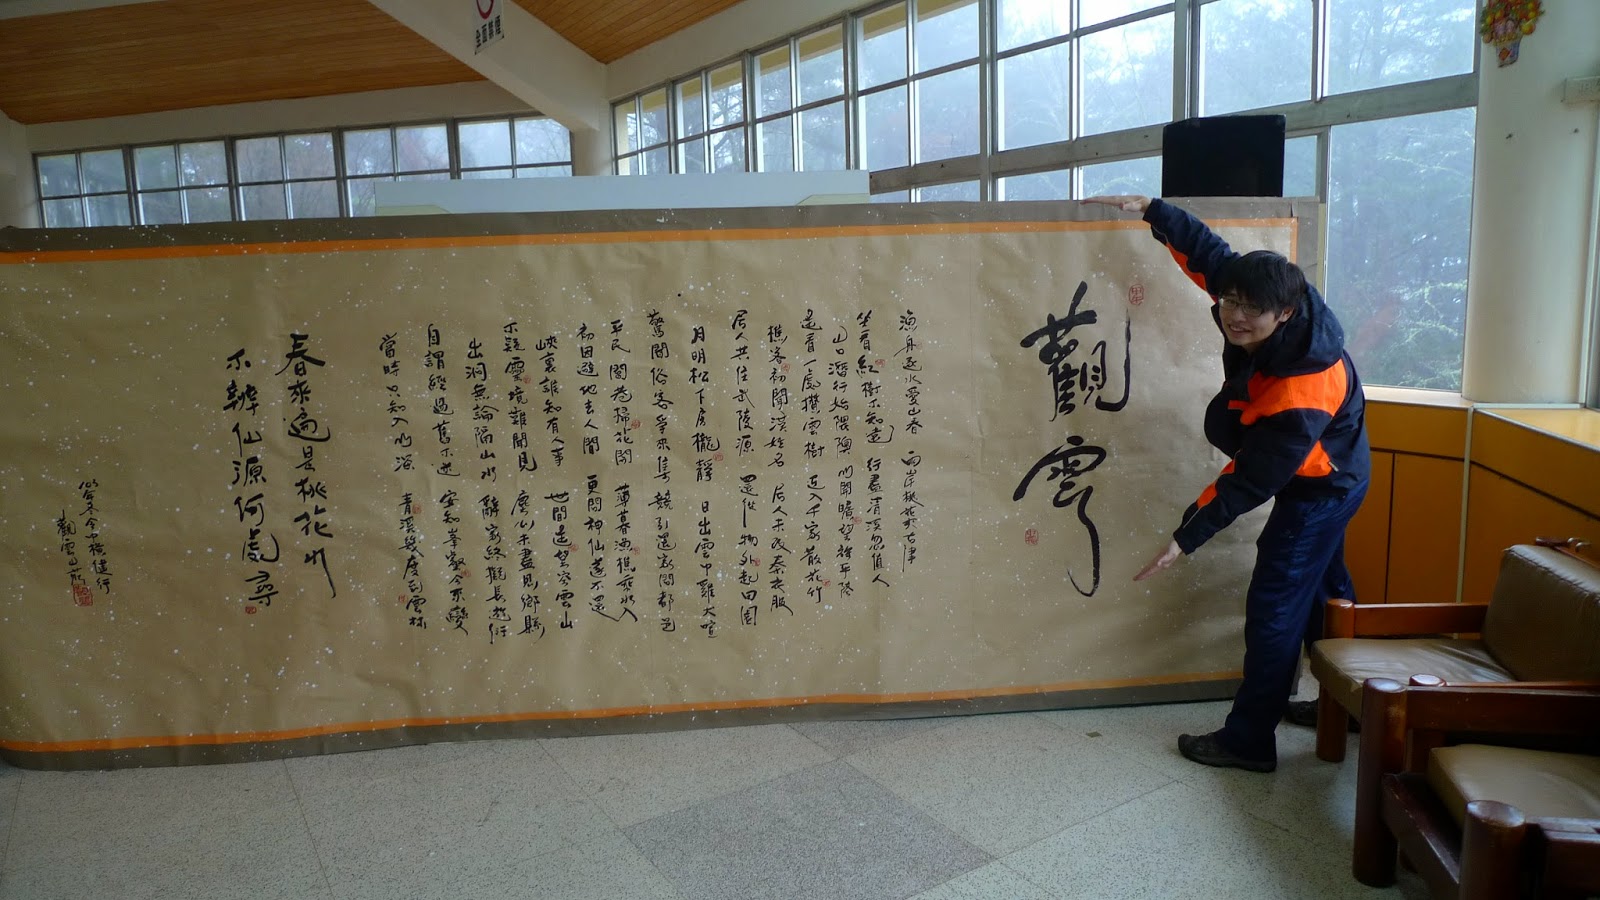 全面禁煙
觀雲
漁舟逐水愛山春 兩岸桃花夾古津
坐看紅樹不知遠 行盡清溪忽值人
山口潛行始隈隩 山開曠望旋平陸
遙看一處攢雲樹 近入千家散花竹
樵客初聞漢姓名 居人未改秦衣服
居人共住武陵源 還從物外起田園
月明松下房櫳靜 日出雲中雞犬喧
驚聞俗客爭來集 競引還家問都邑
平民閭巷掃花開 薄暮漁樵乘水入
初因避地去人間 更問神仙遂不還
峽裏誰知有人事 世間遙望空雲山
不疑靈境難聞見 塵心未盡思鄉縣
出洞無論隔山水 辭家終擬長游衍
自謂經過舊不迷 安知峯壑今來變
當時只知入山深 青溪幾度到雲林
春來遍是桃花水
不辨仙源何處尋
105年冬令中橫健行
觀雲山莊